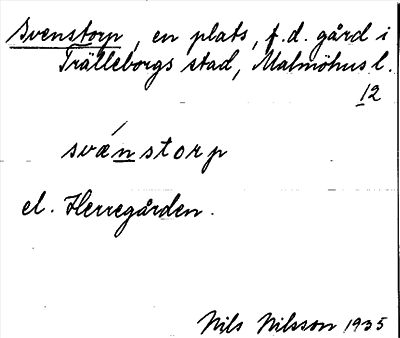 Svenstorp, en plats, f.d. gård i
Trälleborgs stad, Malmöhus l.
12
svǽnstorp
el. Herregården.
Nils Nilsson 1935